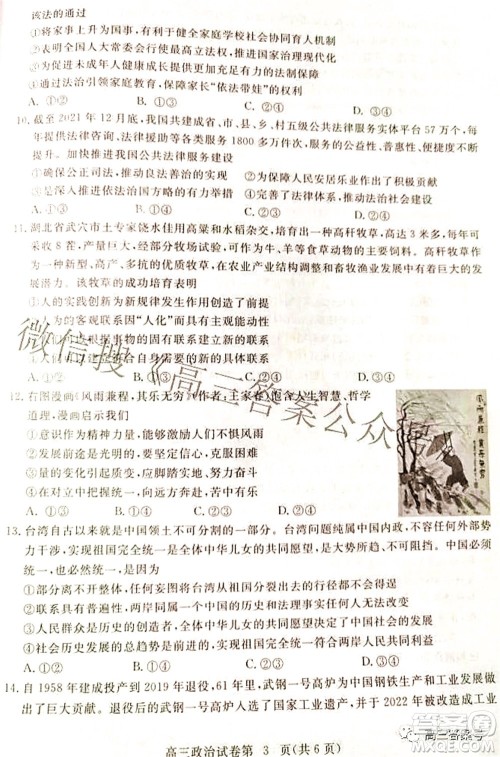 该法的通过
①将家事上升为国事，有利于健全家庭学校社会协同育人机制
②表明全国人大常委会行使最高立法权，推进国家治理现代化
③为促进未成年人健康成长提供更加坚强有力的法治保障
④通过法治引领家庭教育，保障家长“依法带娃”的权利
A. ①② B. ①③ C. ②④ D. ③④
10. 截至 2021 年 12 月底，我国共建成省、市、县、乡、村五级公共法律服务实体平台 57 万个，每年提供法律咨询、法律援助等各类服务 1800 多万件次，公共法律服务的公益性、普惠性、便捷性不断增强。我国推进公共法律服务体系建设
①确保公正司法，推动良法善治的实现 ②保障人民安居乐业，助推平安中国建设
③推进依法治国方略的有力举措 ④完善了法律体系，推动法治社会建设
A. ①② B. ①④ C. ②③ D. ③④
11. 湖北省武穴市土专家饶水佳用高粱和水稻杂交，培育出一种高秆牧草，高达 3 米多，每年可采收 8 茬，产量巨大，经多次牧场试验，可作为牛、羊等食草动物的主要饲料。高秆牧草作为一种新型、高产、多抗的优质牧草，在农业产业结构调整和畜牧渔业发展中有着巨大的发展潜力。该牧草的成功培育表明
①人的实践创新为新规律发生作用创造了前提
②人为的客观联系因“人化”而具有主观色彩
③创新推动事物的新陈代谢，促进事物的发展
④人能建立符合自身需要的不同以往的新联系
A. ①② B. ①③ C. ②④ D. ③④
12. 右图漫画《风雨兼程，其乐无穷》（作者：王家春）饱含人生智慧、哲学道理，漫画启示我们
①意识作为精神力量，能使人们不惧风雨
②发展前途是光明的，要坚定信心，克服困难
③量的变化引起质变，要立足实地，努力奋斗
④在对立中把握统一，于风雨兼程中有乐趣
A. ①② B. ①③ C. ②④ D. ③④
13. 台湾自古以来就是中国领土不可分割的一部分。台湾问题纯属中国内政，不容任何外部势力干涉，实现祖国完全统一是全体中华儿女的共同愿望，是大势所趋、不可阻挡。中国必须统一，也必然统一。这是因为
①部分离不开整体，任何妄图将台湾从祖国分裂出去的行径都不会得逞
②联系具有普遍性，两岸同属一个中国的历史和法理事实不容置疑
③人民群众是历史的创造者，实现祖国完全统一是全体中华儿女的共同愿望
④社会历史发展的总趋势是前进的，两岸人民共同决定了中国社会的发展
A. ①② B. ①③ C. ②④ D. ③④
14. 自 1958 年建成投产到 2019 年退役，61 年里，武钢一号高炉为中国钢铁生产和工业发展作出了巨大贡献。退役后的武钢一号高炉入选了国家工业遗产，并于 2022 年被改造成工业
高三政治试卷第 3 页（共 6 页）
微信搜《高三答案公众号》
高三答案号